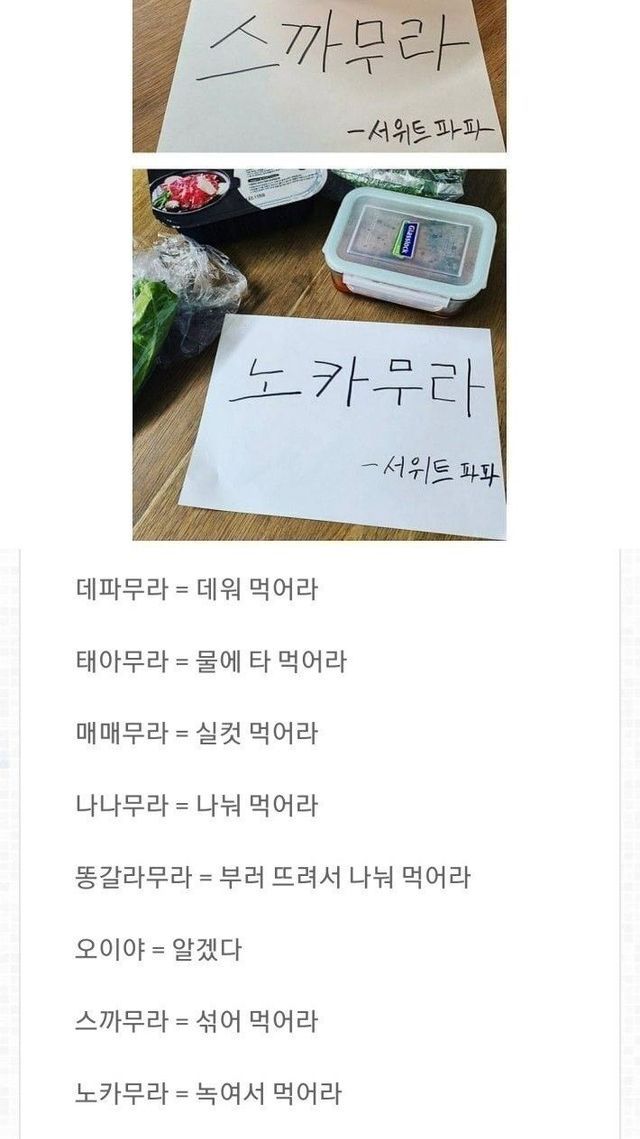 스까무라
-서위트파파
Glasslock
노카무라
-서위트 파파
데파무라 = 데워 먹어라
태아무라 = 물에 타 먹어라
매매무라 = 실컷 먹어라
나나무라 = 나눠 먹어라
똥갈라무라 = 부러 뜨려서 나눠 먹어라
오이야 = 알겠다
스까무라 = 섞어 먹어라
노카무라 = 녹여서 먹어라